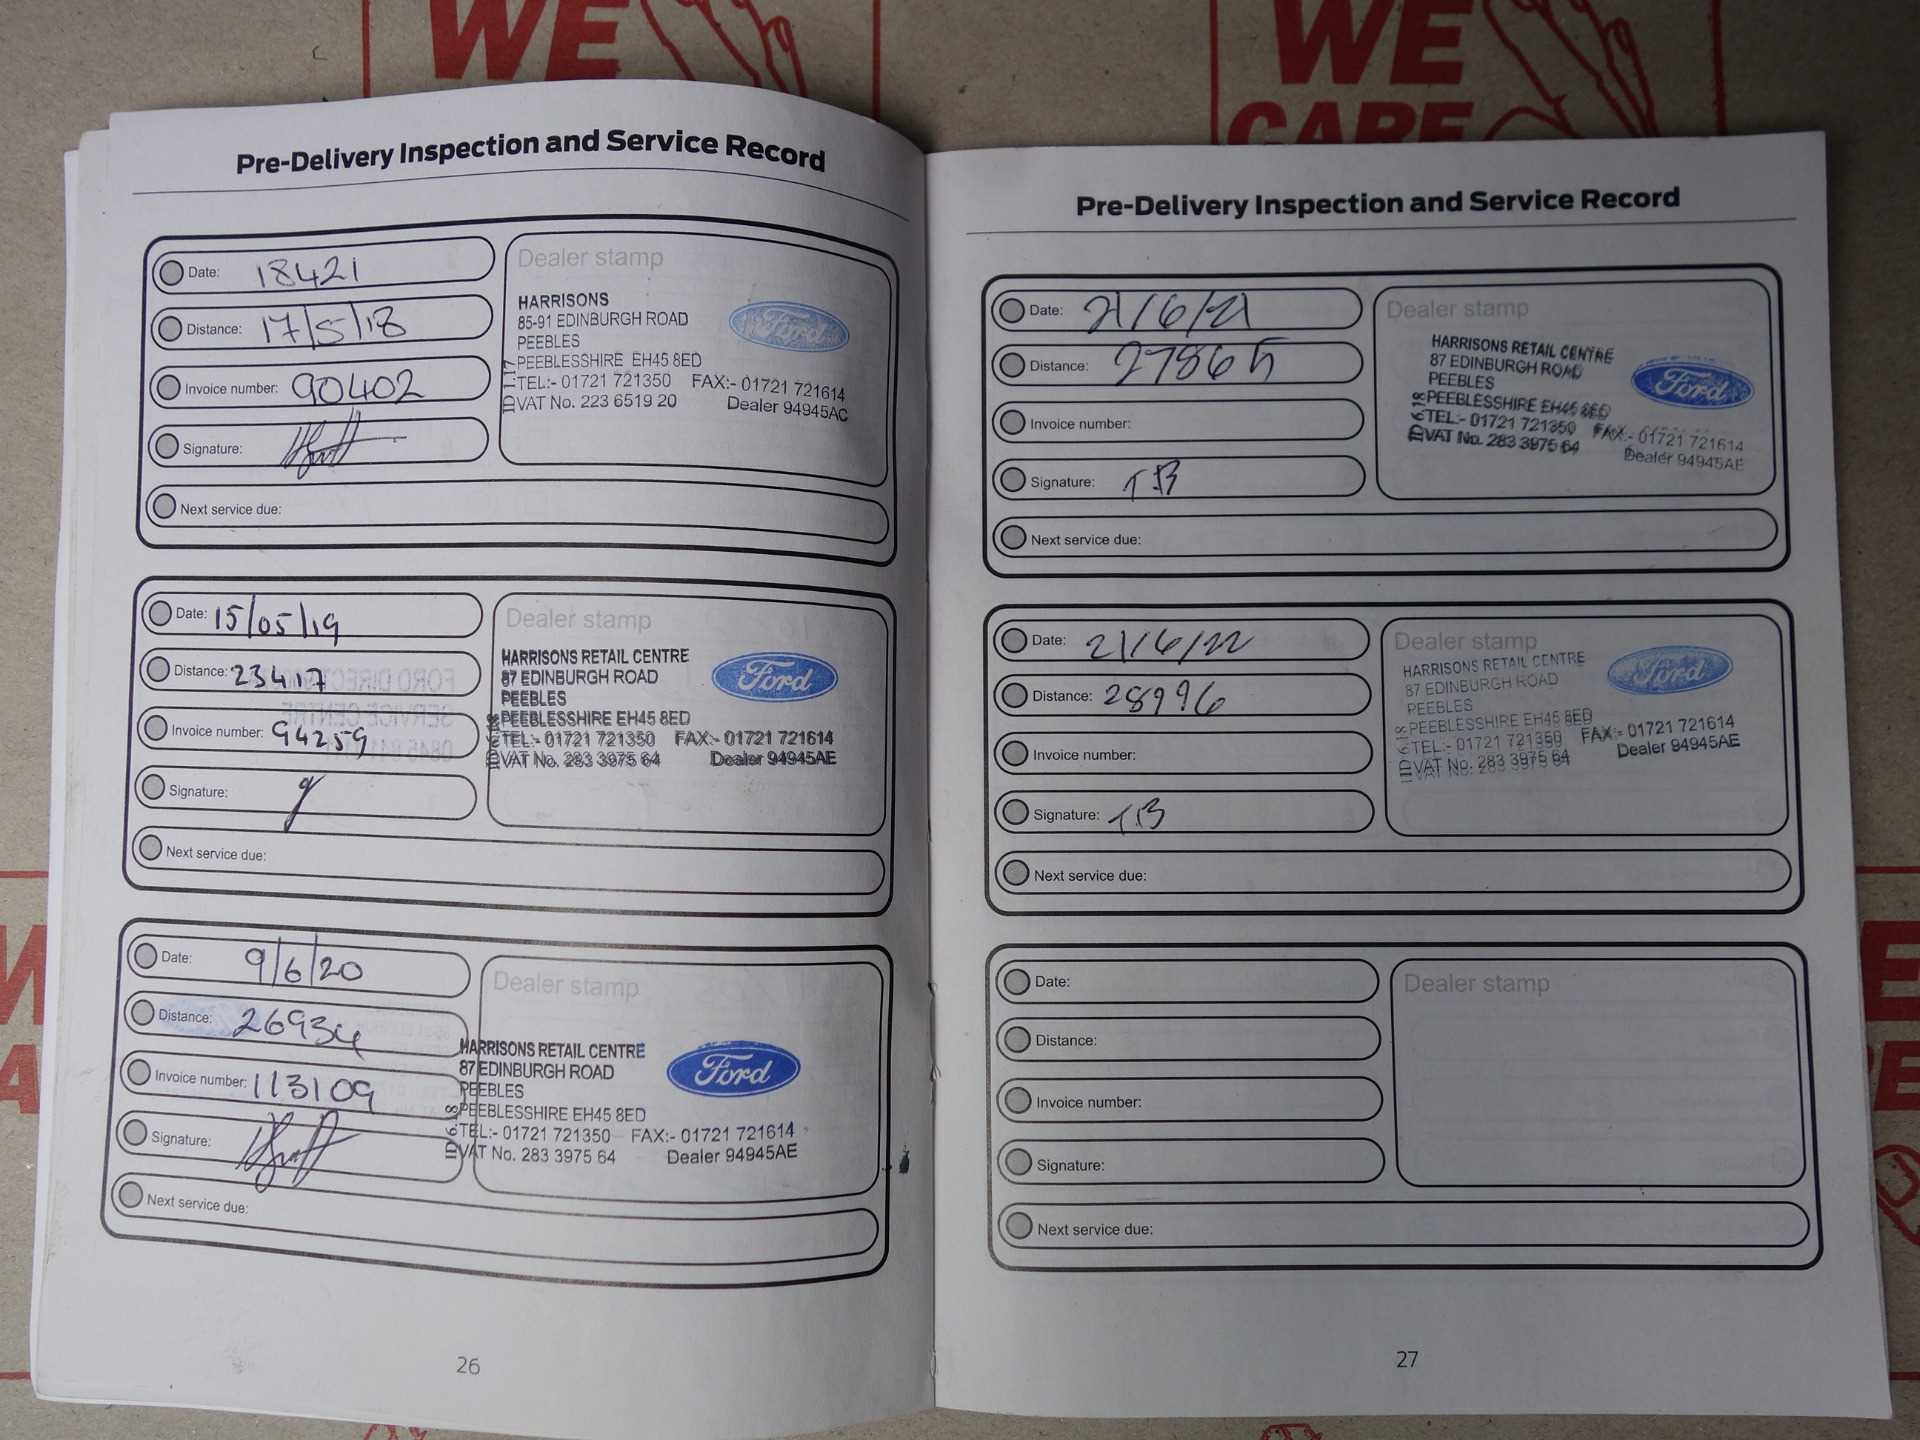 WE
WE
CARE
Pre-Delivery Inspection and Service Record
Date: 18421
Distance: 17/5/18
Invoice number: 90402
Signature:
Next service due:
Dealer stamp
HARRISONS
85-91 EDINBURGH ROAD
PEEBLES
PEEBLESSHIRE EH45 8ED
TEL:- 01721 721350 FAX:- 01721 721614
VAT No. 223 6519 20 Dealer 94945AC
ID 1.17
Ford
Date: 15/05/19
Distance: 23417
Invoice number: 94259
Signature:
Next service due:
Dealer stamp
HARRISONS RETAIL CENTRE
87 EDINBURGH ROAD
PEEBLES
PEEBLESSHIRE EH45 8ED
TEL:- 01721 721350 FAX:- 01721 721614
VAT No. 283 3975 64 Dealer 94945AE
Ford
Date: 9/6/20
Distance: 26934
Invoice number: 113109
Signature:
Next service due:
Dealer stamp
HARRISONS RETAIL CENTRE
87 EDINBURGH ROAD
PEEBLES
PEEBLESSHIRE EH45 8ED
TEL:- 01721 721350 FAX:- 01721 721614
VAT No. 283 3975 64 Dealer 94945AE
ID 6.18
Ford
26
Pre-Delivery Inspection and Service Record
Date: 21/6/21
Distance: 27865
Invoice number:
Signature: TB
Next service due:
Dealer stamp
HARRISONS RETAIL CENTRE
87 EDINBURGH ROAD
PEEBLES
PEEBLESSHIRE EH45 8ED
TEL:- 01721 721350 FAX:- 01721 721614
VAT No. 283 3975 64 Dealer 94945AE
Ford
Date: 21/6/22
Distance: 28996
Invoice number:
Signature: TB
Next service due:
Dealer stamp
HARRISONS RETAIL CENTRE
87 EDINBURGH ROAD
PEEBLES
PEEBLESSHIRE EH45 8ED
TEL:- 01721 721350 FAX:- 01721 721614
VAT No. 283 3975 64 Dealer 94945AE
Ford
Date:
Distance:
Invoice number:
Signature:
Next service due:
Dealer stamp
27